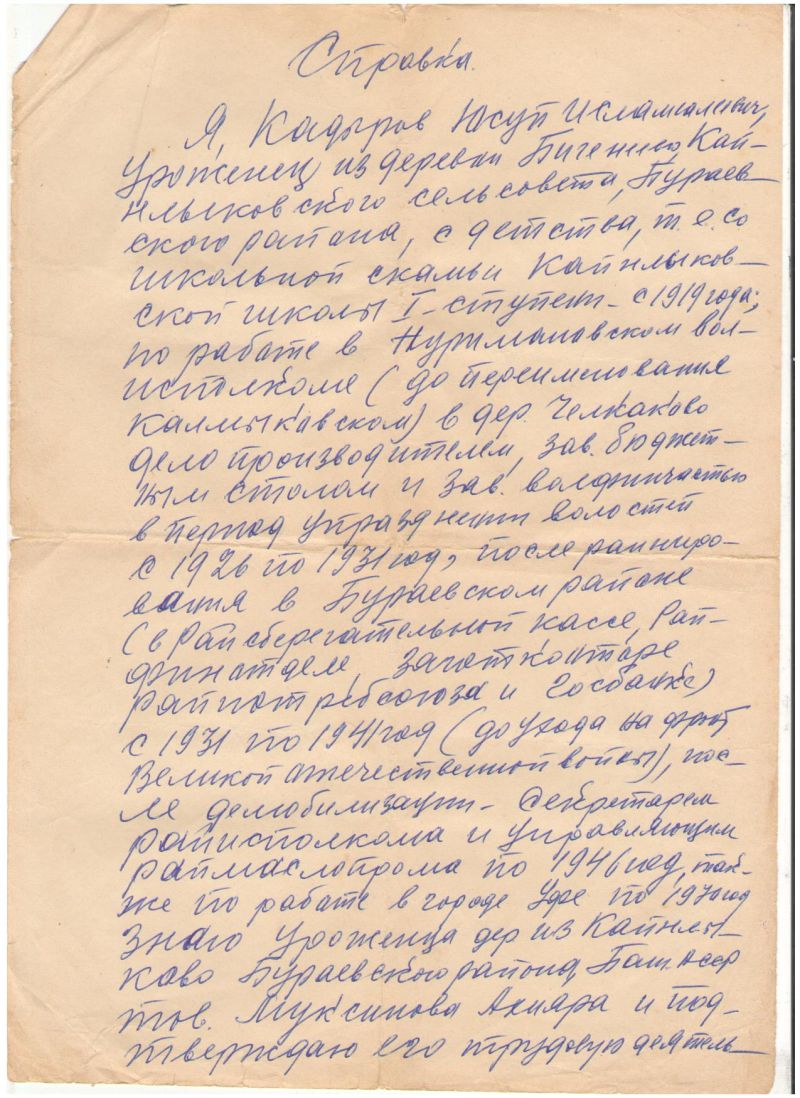 Справка.
Я, Кадыров Юсуп Исламгалеевич,
уроженец из деревни Бигенево Кай-
нлыковского сельсовета, Бураев-
ского района, с детства, т.е. со
школьной скамьи Кайнлыков-
ской школы I-ступени - с 1919 года;
по работе в Нуримановском вол-
исполкоме (до переименования
Калмыкавском) в дер. Челкаково
дело производителем, зав. бюджет-
ным столом и зав. волфинчастью
в период упразднении волостей
с 1926 по 1931 год, после райниро-
вания в Бураевском районе
(в Райсберегательной кассе, Рай-
финотделе, Заготконторе
Райпотребсоюза и Госбанке)
с 1931 по 1941 год (до ухода на фронт
Великой Отечественной войны), пос-
ле демобилизации - секретарем
райисполкома и управляющим
раймаслопрома по 1946 год, так-
же по работе в городе Уфе по 1970 год
знаю уроженца дер из Кайнлы-
ково Бураевского района, Баш. АССР
тов. Муксинова Ахияра и под-
тверждаю его трудовую деятель-